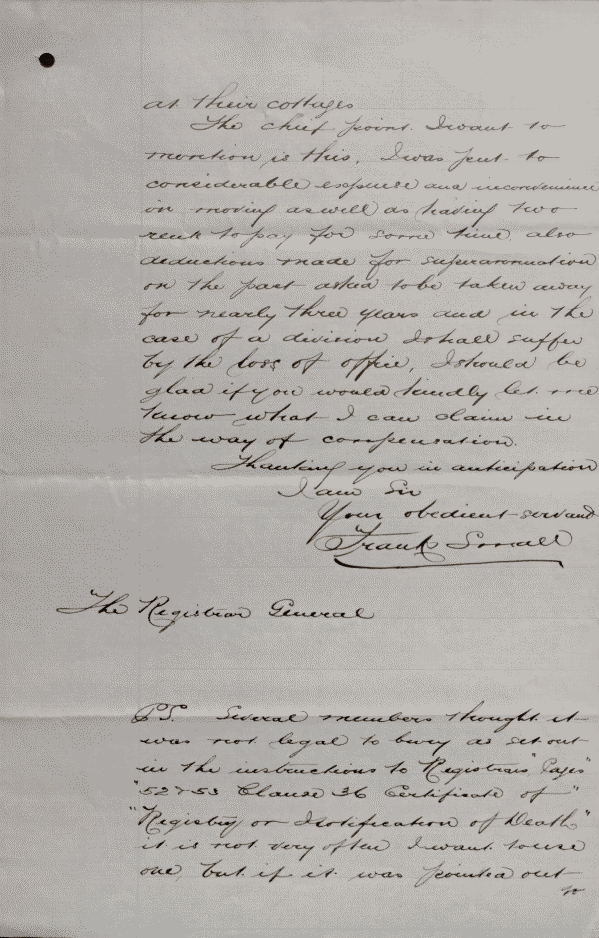 at their cottages
The chief point I want to
mention is this, I was put to
considerable expense and inconvenience
in moving as well as having two
rents to pay for some time also
deductions made for superannuation
on the past asked to be taken away
for nearly three years and in the
case of a division I shall suffer
by the loss of office, I should be
glad if you would kindly let me
know what I can claim in
the way of compensation.
Thanking you in anticipation
I am Sir
Your obedient servant
Frank Small
The Registrar General
PS. Several members thought it
was not legal to bury as set out
in the instructions to Registrars "Pages"
"52 & 53 Clause 36 Certificate of"
"Registry or Notification of Death"
it is not very often I want to use
one, but if it was pointed out
to